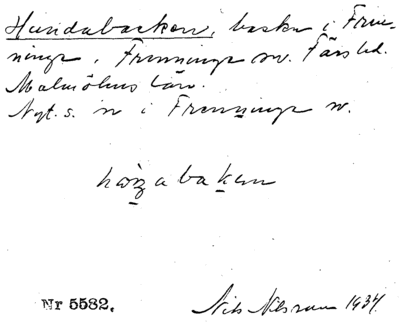 Hundabacken, backe i Fren-
ninge, Frenninge sn. Färs hd.
Malmöhus län.
Nyt. s. n i Frenninge sn.
Nr 5582.
Nils Nilsson 1934.